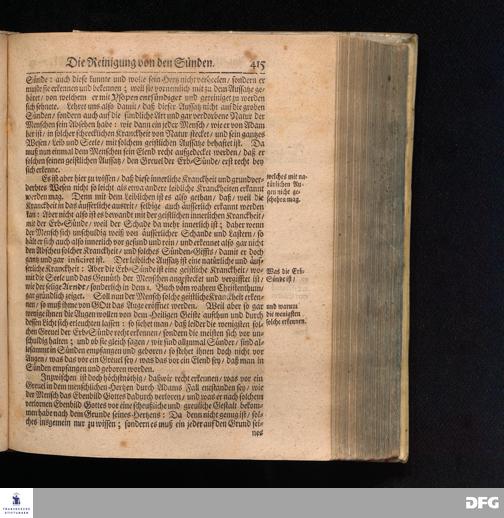 Die Reinigung von den Sünden. 415
Sünde: auch diese kunnte und wolte sein Hertz nicht verheelen / sondern er
muste sie erkennen und bekennen; weil sie vornemlich mit zu dem Aussatze ge-
höret / von welchem er mit Ysopen entsündiget und gereiniget zu werden
sich sehnete. Lehret uns also damit / daß dieser Aussatz nicht auf die groben
Sünden / sondern auch auf die sündliche Art und gar verdorbene Natur der
Menschen sein Absehen habe: wie dann ein jeder Mensch / wie er von Adam
her ist / in solcher schrecklichen Kranckheit von Natur stecket / und sein gantzes
Wesen / Leib und Seele / mit solchem geistlichen Aussatze behafftet ist. Da
muß nun einmal dem Menschen sein Elend recht aufgedecket werden / daß er
solchen seinen geistlichen Aussatz / den Greuel der Erb-Sünde / erst recht bey
sich erkenne.
Es ist aber hier zu wissen / daß diese innerliche Kranckheit und grundver-
derbtes Wesen nicht so leicht als etwa andere leibliche Kranckheiten erkannt
werden mag. Denn mit den Leiblichen ist es also gethan / daß / weil die
Kranckheit in das äusserliche ausreit / selbige auch äusserlich erkannt werden
kan: Aber nicht also ist es bewandt mit der geistlichen innerlichen Kranckheit /
mit der Erb-Sünde / weil der Schade da mehr innerlich ist; daher wenn
der Mensch sich unschuldig weiß von äusserlicher Schande und Lastern / so
hält er sich auch also innerlich vor gesund und rein / und erkennet also gar nicht
den Abscheu solcher Kranckheit / und solches Sünden-Giffts / damit er doch
gantz und gar inficiret ist. Der leibliche Aussatz ist eine natürliche und äus-
serliche Kranckheit: Aber die Erb-Sünde ist eine geistliche Kranckheit / wo-
mit die Seele und das Gemüth der Menschen angestecket und vergifftet ist /
wie der selige Arndt / sonderlich in dem 1. Buch vom wahren Christenthum /
gar gründlich zeiget. Soll nun der Mensch solche geistliche Kranckheit erken-
nen / so muß ihme von GOtt das Auge eröffnet werden. Weil aber so gar
wenige ihnen die Augen wollen von dem Heiligen Geiste aufthun und durch
dessen Licht sich erleuchten lassen: so siehet man / daß leider die wenigsten sol-
chen Greuel der Erb-Sünde recht erkennen / sondern die meisten sich vor un-
schuldig halten; und ob sie gleich sagen / wir sind allzumal Sünder / sind al-
lesammt in Sünden empfangen und geboren / so stehet ihnen doch nicht vor
Augen / was das vor ein Greuel sey / was das vor ein Elend sey / daß man in
Sünden empfangen und geboren worden.
Inzwischen ist doch höchstnöthig / daß wir recht erkennen / was vor ein
Greuel in dem menschlichen Hertzen durch Adams Fall entstanden sey / wie
der Mensch das Ebenbild Gottes dadurch verloren / und was er nach solchem
verlornen Ebenbild Gottes vor eine scheußliche und greuliche Gestalt bekom-
men habe nach dem Grunde seines Hertzens: Da denn nicht genug ist / sol-
ches insgemein nur zu wissen; sondern es muß ein jeder auf den Grund sei-
nes
welches mit na-
türlichen Au-
gen nicht ge-
sehen mag.
Was die Erb-
Sünde ist /
und warum
die wenigsten
solche erkennen.
FRANCKESCHE
STIFTUNGEN
DFG